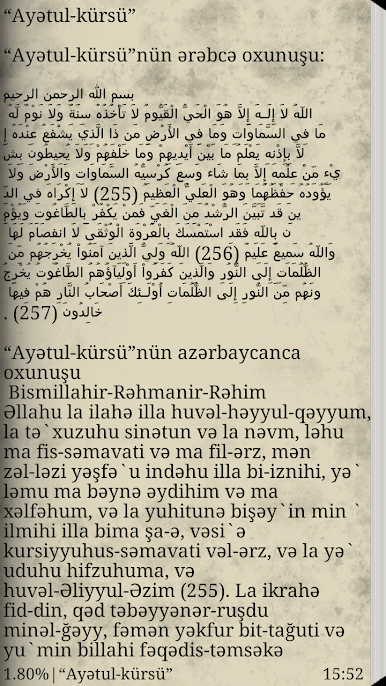 “Ayətul-kürsü”
“Ayətul-kürsü”nün ərəbcə oxunuşu:
بسم الله الرحمن الرحيم
اللّهُ لاَ إِلَـهَ إِلاَّ هُوَ الْحَيُّ الْقَيُّومُ لاَ تَأْخُذُهُ سِنَةٌ وَلاَ نَوْمٌ لَّهُ
مَا فِي السَّمَاوَاتِ وَمَا فِي الأَرْضِ مَن ذَا الَّذِي يَشْفَعُ عِنْدَهُ إِ
لاَّ بِإِذْنِهِ يَعْلَمُ مَا بَيْنَ أَيْدِيهِمْ وَمَا خَلْفَهُمْ وَلاَ يُحِيطُونَ بِشَ
يْءٍ مِّنْ عِلْمِهِ إِلاَّ بِمَا شَاء وَسِعَ كُرْسِيُّهُ السَّمَاوَاتِ وَالأَرْضَ وَلاَ
يَؤُودُهُ حِفْظُهُمَا وَهُوَ الْعَلِيُّ الْعَظِيمُ (255) لاَ إِكْرَاهَ فِي الد
ِّينِ قَد تَّبَيَّنَ الرُّشْدُ مِنَ الْغَيِّ فَمَنْ يَكْفُرْ بِالطَّاغُوتِ وَيُؤْمِ
ن بِاللّهِ فَقَدِ اسْتَمْسَكَ بِالْعُرْوَةِ الْوُثْقَىَ لاَ انفِصَامَ لَهَا
وَاللّهُ سَمِيعٌ عَلِيمٌ (256) اللّهُ وَلِيُّ الَّذِينَ آمَنُواْ يُخْرِجُهُم مِّنَ
الظُّلُمَاتِ إِلَى النُّوُرِ وَالَّذِينَ كَفَرُواْ أَوْلِيَآؤُهُمُ الطَّاغُوتُ يُخْرِجُ
ونَهُم مِّنَ النُّورِ إِلَى الظُّلُمَاتِ أُوْلَـئِكَ أَصْحَابُ النَّارِ هُمْ فِيهَا
خَالِدُونَ (257) .
“Ayətul-kürsü”nün azərbaycanca
oxunuşu
Bismillahir-Rəhmanir-Rəhim
Əllahu la ilahə illa huvəl-həyyul-qəyyum,
la tə`xuzuhu sinətun və la nəvm, ləhu
ma fis-səmavati və ma fil-ərz, mən
zəl-ləzi yəşfə`u indəhu illa bi-iznihi, yə`
ləmu ma bəynə əydihim və ma
xəlfəhum, və la yuhitunə bişəy`in min `
ilmihi illa bima şa-ə, vəsi`ə
kursiyyuhus-səmavati vəl-ərz, və la yə`
uduhu hifzuhuma, və
huvəl-Əliyyul-Əzim (255). La ikrahə
fid-din, qəd təbəyyənər-ruşdu
minəl-ğəyy, fəmən yəkfur bit-tağuti və
yu`min billahi fəqədis-təmsəkə
1.80%|“Ayətul-kürsü” 15:52